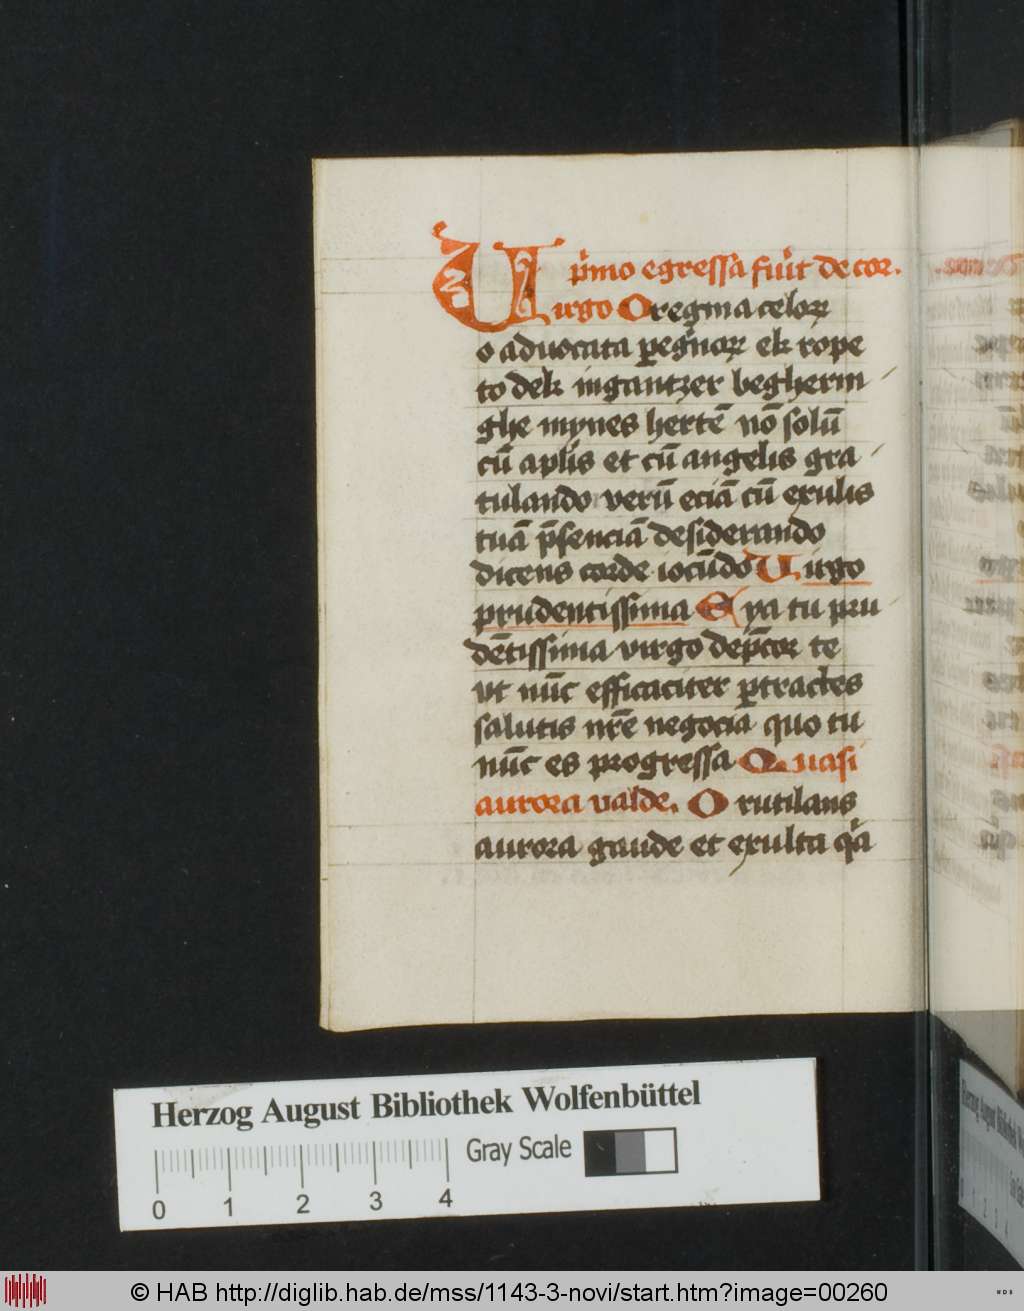 p'mo egressa fu'it de cor.
Virgo O regina celoꝝ
o aduocata p̱egnoꝝ ek rope
to dek ingantzer begherin
ghe mynes hertē nō solū
cū aplīs et cū angelis gra
tulando verū eciā cū exulis
tuā p̄senciā desiderando
dicens corde iocūdo Uirgo
prudentissima Eya tu pru
dētissima virgo dep̄cor te
vt nūc efficaciter ꝑtractes
salutis nr̄e negocia quo tu
nūc es progressa Quasi
aurora valde. O rutilans
aurora gaude et exulta q'a
Herzog August Bibliothek Wolfenbüttel
Gray Scale
0 1 2 3 4
© HAB http://diglib.hab.de/mss/1143-3-novi/start.htm?image=00260